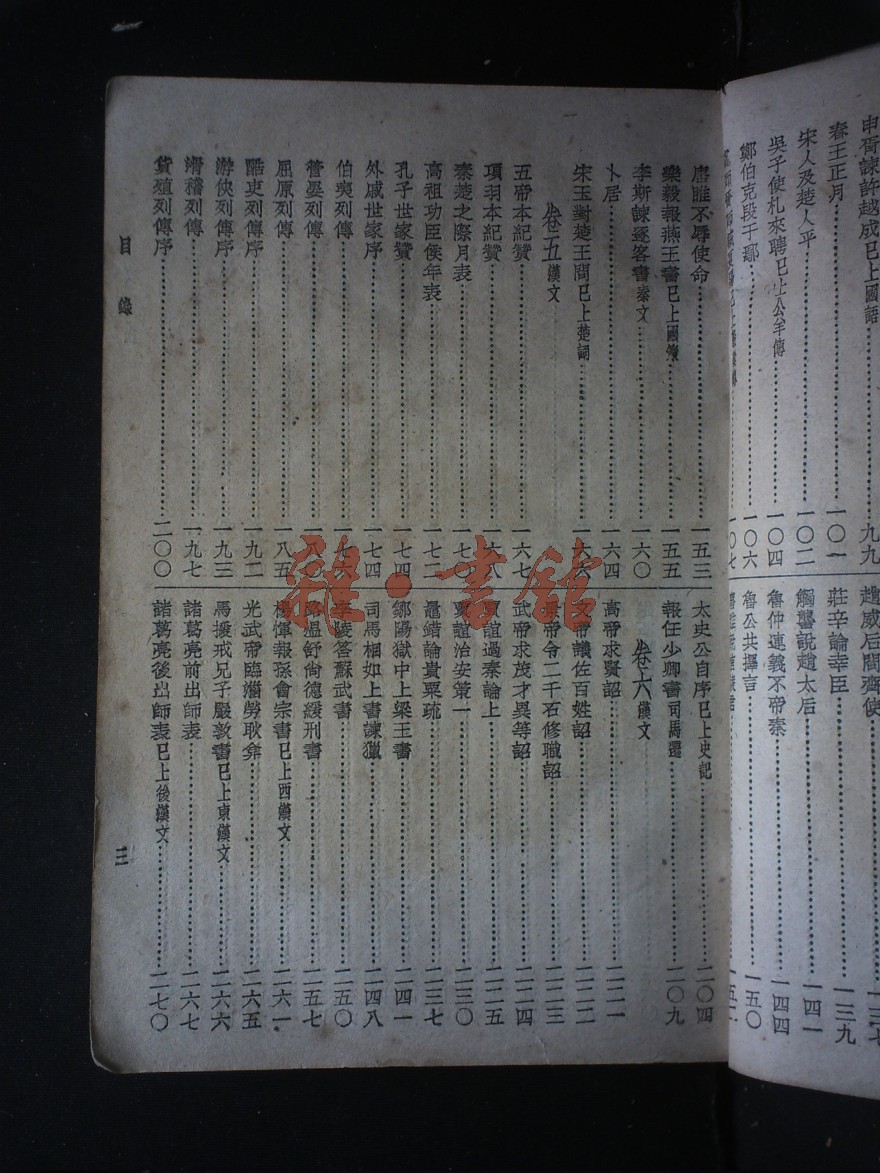 申胥諫許越成已上國語 九九
春王正月 一〇一
宋人及楚人平 一〇二
吳子使札來聘已上公羊傳 一〇四
鄭伯克段于鄢 一〇六
一〇七
趙威后問齊使 一三七
莊辛論幸臣 一三九
觸讋說趙太后 一四一
魯仲連義不帝秦 一四四
魯公共擇言 一五〇
唐雎不辱使命 一五三
樂毅報燕王書已上國策 一五五
李斯諫逐客書秦文 一六〇
卜居 一六四
宋玉對楚王問已上楚詞 一六六
卷五漢文
五帝本紀贊 一六七
項羽本紀贊 一六八
秦楚之際月表 一七〇
高祖功臣侯年表 一七二
孔子世家贊 一七四
外戚世家序 一七四
伯夷列傳 一七六
管晏列傳 一八〇
屈原列傳 一八五
酷吏列傳序 一九二
游俠列傳序 一九三
滑稽列傳 一九七
貨殖列傳序 二〇〇
太史公自序已上史記 二〇四
報任少卿書司馬遷 二〇九
卷六漢文
高帝求賢詔 二二一
文帝議佐百姓詔 二二二
景帝令二千石修職詔 二二三
武帝求茂才異等詔 二二四
賈誼過秦論上 二二五
賈誼治安策一 二三〇
鼂錯論貴粟疏 二三七
鄒陽獄中上梁王書 二四一
司馬相如上書諫獵 二四八
李陵答蘇武書 二五〇
路溫舒尚德緩刑書 二五七
楊惲報孫會宗書已上西漢文 二六一
光武帝臨淄勞耿弇 二六五
馬援戒兄子嚴敦書已上東漢文 二六六
諸葛亮前出師表 二六七
諸葛亮後出師表已上後漢文 二七〇
目錄
三
雜·書館